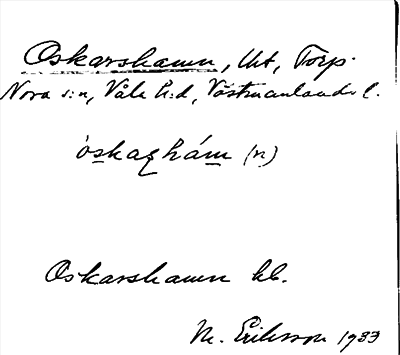 Oskarshamn, lht, Torp.
Nora s:n, Våla h:d, Västmanlands l.
òskaʂhám (n)
Oskarshamn hb.
M. Eriksson 1933